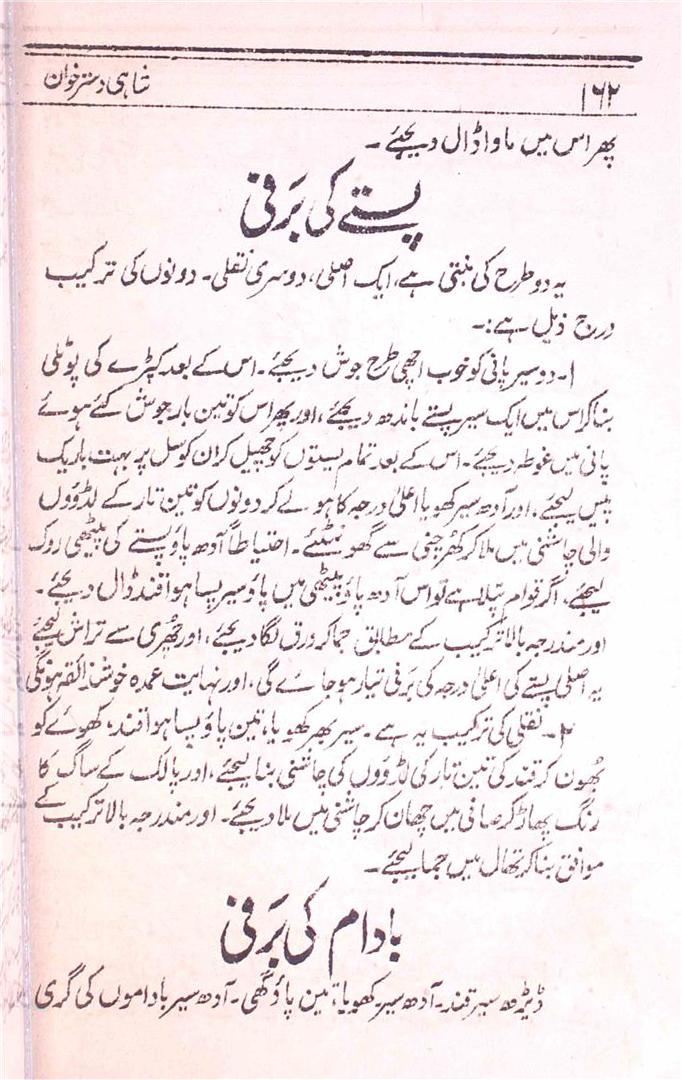 ۱۶۲
شاہی دسترخوان
پھر اس میں ماوا ڈال دیجئے۔
پستے کی بَرفی
یہ دو طرح کی بنتی ہے، ایک اصلی، دوسری نقلی۔ دونوں کی ترکیب
درج ذیل ہے:۔
۱۔ دو سیر پانی کو خوب اچھی طرح جوش دیجئے۔ اس کے بعد کپڑے کی پوٹلی
بنا کر اس میں ایک سیر پستے باندھ دیجئے، اور پھر اس کو تین بار جوش کئے ہوئے
پانی میں غوطہ دیجئے۔ اس کے بعد تمام پستوں کو چھیل کر ان کو سل پر بہت باریک
پیس لیجئے، اور آدھ سیر کھویا اعلیٰ درجہ کا ہو لے کر دونوں کو تین تار کے لڈوؤں
والی چاشنی میں ملا کر کھرچنی سے گھونٹیئے۔ احتیاطاً آدھ پاؤ پستے کی پیٹھی روک
لیجئے، اگر قوام پتلا ہے تو اس آدھ پاؤ پیٹھی میں پاؤ سیر پسا ہوا قند ڈال دیجئے۔
اور مندرجہ بالا ترکیب کے مطابق جما کر ورق لگا دیجئے، اور چھُری سے تراش لیجئے
یہ اصلی پستے کی اعلیٰ درجہ کی بَرفی تیار ہو جائے گی، اور نہایت عمدہ خوش ذائقہ ہونگی
۲۔ نقلی کی ترکیب یہ ہے۔ سیر بھر کھویا، تین پاؤ پسا ہوا قند، کھوئے کو
بھُون کر قند کی تین تار کی لڈوؤں کی چاشنی بنا لیجئے، اور پالک کے ساگ کا
رنگ پھاڑ کر صافی میں چھان کر چاشنی میں ملا دیجئے۔ اور مندرجہ بالا ترکیب کے
موافق بنا کر تھال میں جما لیجئے۔
بادام کی بَرفی
ڈیڑھ سیر قند۔ آدھ سیر کھویا، تین پاؤ گھی۔ آدھ سیر باداموں کی گری